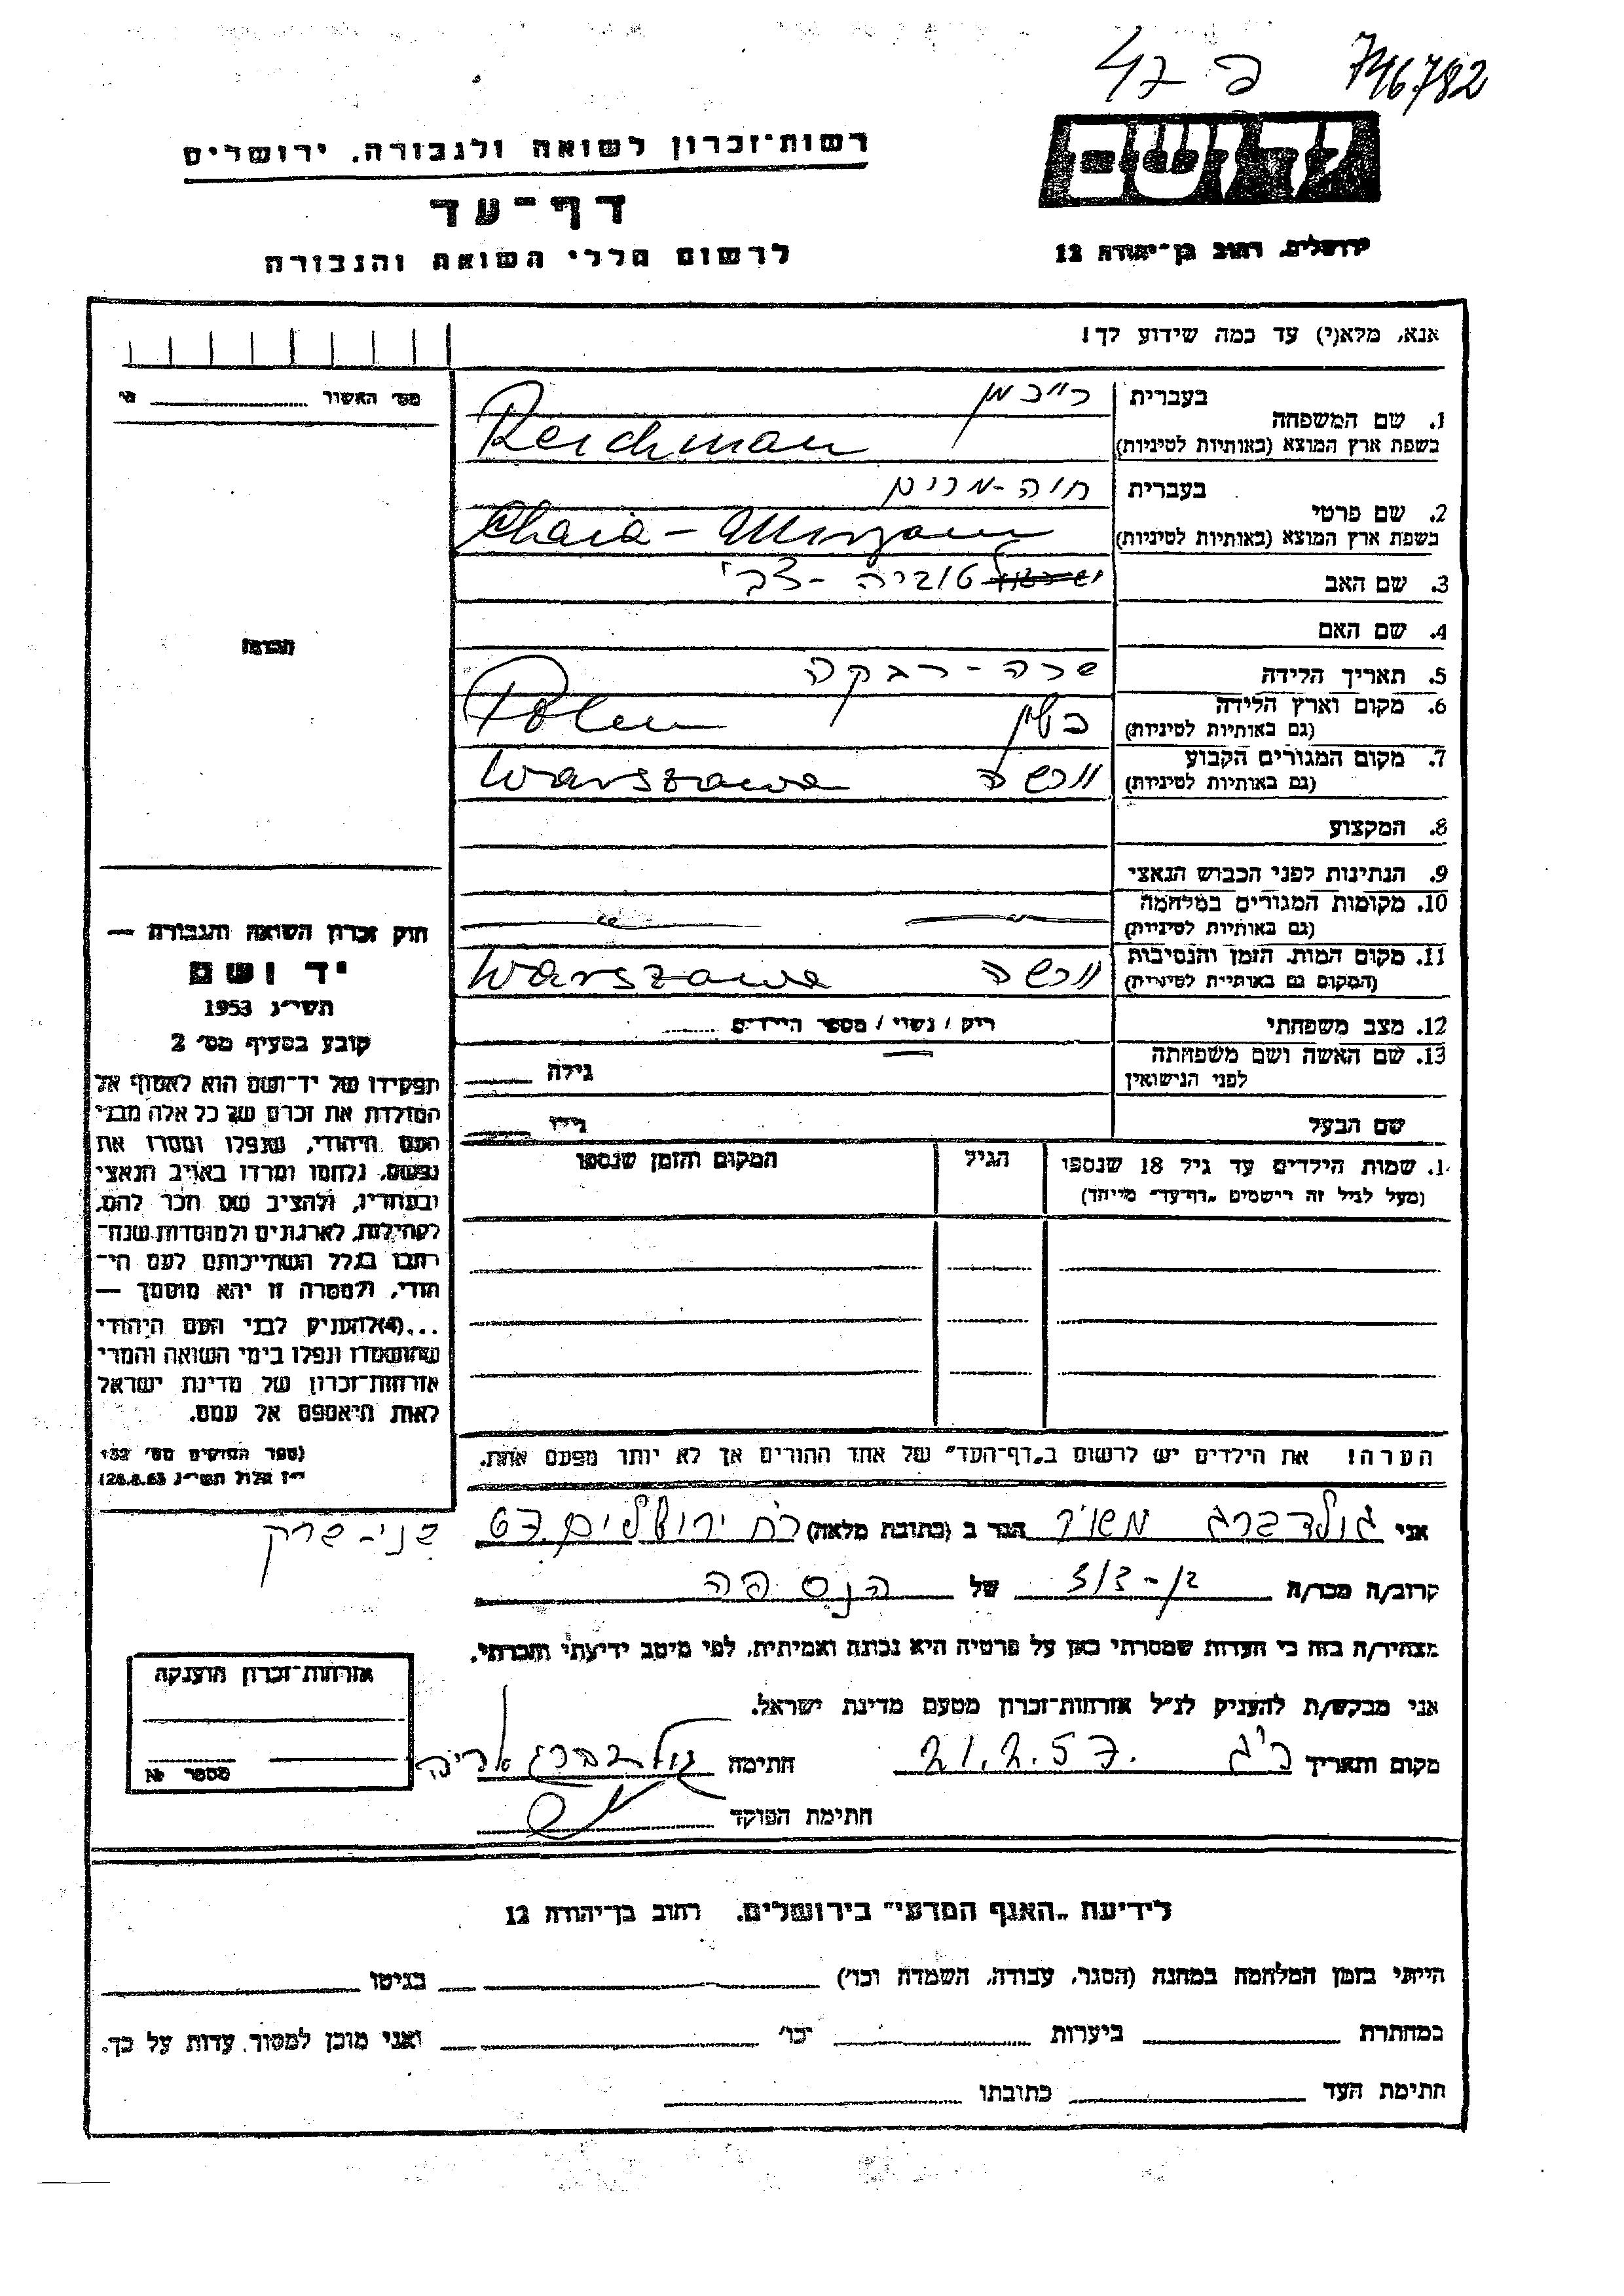 746782
רשות־זכרון לשואה ולגבורה. ירושלים
דף־עד
לרשום חללי השואה והגבורה
יד ושם
ירושלים, רחוב בן־יהודה 12
אנא, מלא(י) עד כמה שידוע לך!
מס׳ האשור
1. שם המשפחה
בעברית
רייכמן
בשפת ארץ המוצא (באותיות לטיניות)
Reichman
2. שם פרטי
בעברית
חיה-מרים
בשפת ארץ המוצא (באותיות לטיניות)
Chaia-
3. שם האב
טוביה-צבי
4. שם האם
שרה-רבקה
5. תאריך הלידה
6. מקום וארץ הלידה
(גם באותיות לטיניות)
פולין Polen
7. מקום המגורים הקבוע
(גם באותיות לטיניות)
ורשה Warszawa
8. המקצוע
9. הנתינות לפני הכבוש הנאצי
10. מקומות המגורים במלחמה
(גם באותיות לטיניות)
11. מקום המות. הזמן והנסיבות
(המקום גם באותיות לטיניות)
ורשה Warszawa
12. מצב משפחתי
רוק / נשוי / מספר הילדים
13. שם האשה ושם משפחתה
לפני הנישואין
גילה
שם הבעל
גילו
14. שמות הילדים עד גיל 18 שנספו
(מעל לגיל זה רישמים „דף־עד״ מיוחד)
הגיל
המקום והזמן שנספו
הערה! את הילדים יש לרשום ב„דף־העד״ של אחד ההורים אך לא יותר מפעם אחת.
חוק זכרון השואה והגבורה —
יד ושם
תשי״ג 1953
קובע בסעיף מס׳ 2
תפקידו של יד־ושם הוא לאסוף אל
המולדת את זכרם של כל אלה מבני
העם היהודי, שנפלו ומסרו את
נפשם, נלחמו ומרדו באויב הנאצי
ובעוזריו, ולהציב שם וזכר להם,
לקהילות, לארגונים ולמוסדות שנח־
רבו בגלל השתייכותם לעם הי־
הודי, ולמטרה זו יהא מוסמך —
...(4)להעניק לבני העם היהודי
שהושמדו ונפלו בימי השואה והמרי
אזרחות־זכרון של מדינת ישראל
לאות היאספם אל עמם.
(ספר החוקים מס׳ 132
י״ז אלול תשי״ג 28.8.53)
אני גולדברג הגר ב (כתובת מלאה) רח ירושלים 67 בני-ברק
קרוב/ה מכר/ה בן-דוד של הנספה
מצהיר/ה בזה כי העדות שמסרתי כאן על פרטיה היא נכונה ואמיתית, לפי מיטב ידיעתי והכרתי.
אני מבקש/ת להעניק לנ״ל אזרחות־זכרון מטעם מדינת ישראל.
מקום ותאריך 21.2.57 חתימה גולדברג אריה
חתימת הפוקד
אזרחות־זכרון הוענקה
מספר №
לידיעת „האגף המדעי״ בירושלים. רחוב בן־יהודה 12
הייתי בזמן המלחמה במחנה (הסגר, עבודה, השמדה וכו׳) בגיטו
במחתרת ביערות וכו׳ ואני מוכן למסור עדות על כך.
חתימת העד כתובתו